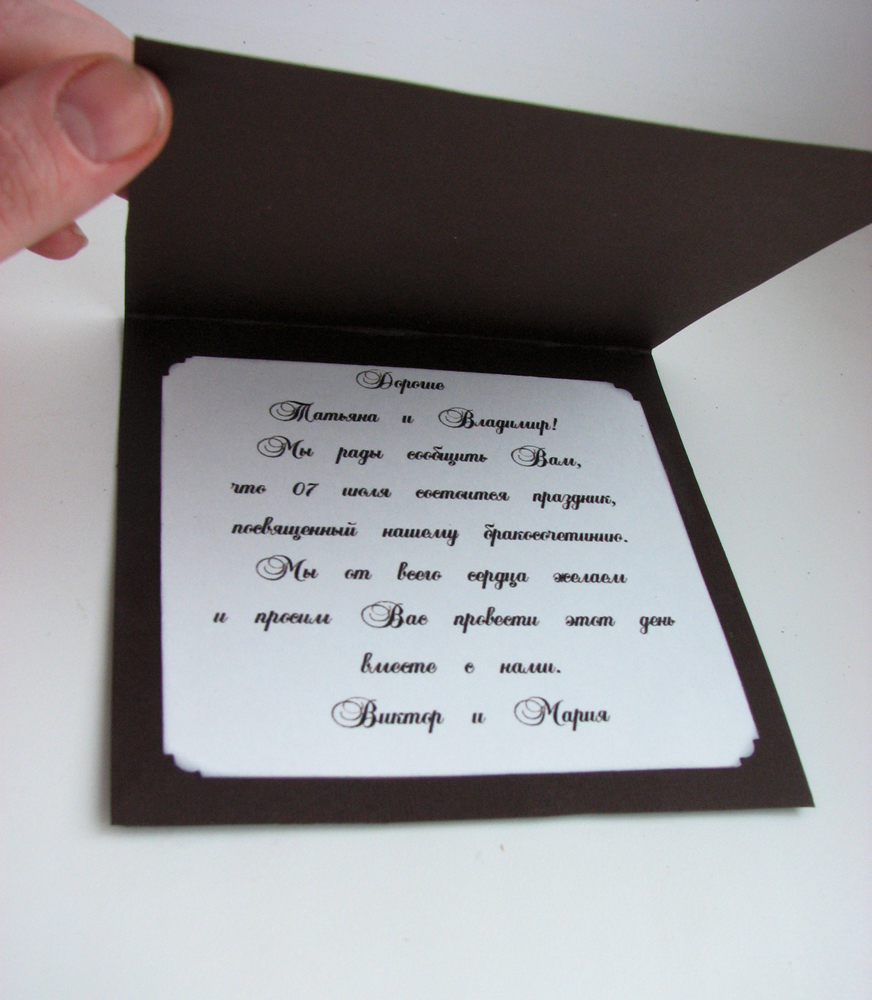 Дорогие
Татьяна и Владимир!
Мы рады сообщить Вам,
что 07 июля состоится праздник,
посвященный нашему бракосочетинию.
Мы от всего сердца желаем
и просим Вас провести этот день
вместе с нами.
Виктор и Мария